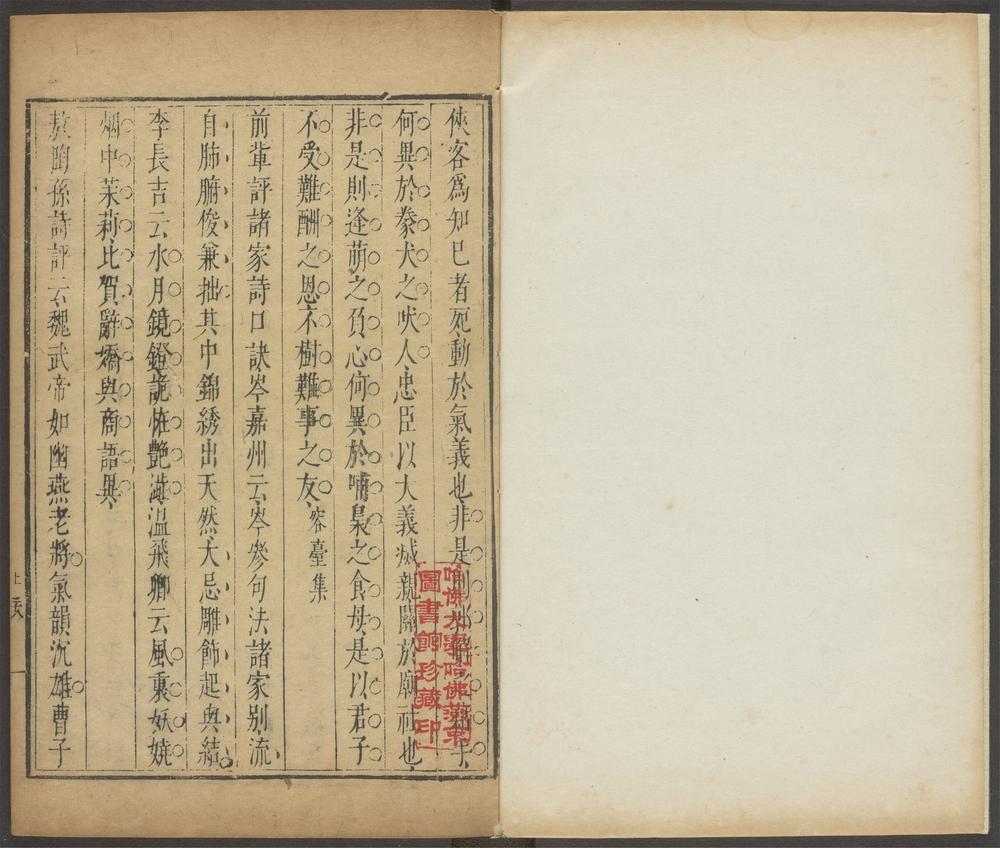 俠客爲知已者死動於氣義也非是
何異於豢犬之吠人忠臣以大義滅親關於廟社也
非是則逢萌之負心何異於哺梟之食母是以君子
不受難酬之恩不樹難事之友容臺集
前輩評諸家詩口訣岑嘉州云岑參句法諸家别流
自肺腑俊兼拙其中錦綉出天然大忌雕飾起與結
李長吉云水月鏡鐙詭恠艷溫飛卿云風裊妖嬈
烟中茉莉比賀辭嬌與商語異
敖陶孫詩評云魏武帝如幽燕老將氣韻沉雄曹子
上
一
哈佛大學哈佛燕京
圖書館珍藏印